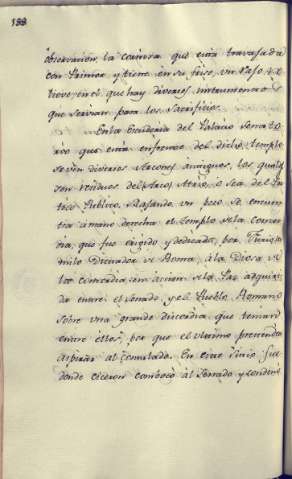 188.
observacion, la cornisa que está travajada
con Primor y tiene en su friso, un Vaso, re
lieve, en el que hay diversos instrumentos
que servian para los Sacrificios.
En la del Palacio Senato
rio que está enfrente del dicho templo
se vén diversos antiguos, los quales
son del o sea del
Publico, Bajando un poco se encuen
tra á mano derecha el templo de la Concor
dia, que fué erigido y dedicado, por Furio Ca
milo Dictador de Roma, á la Diosa de
la Concordia en accion de la Paz adquiri
da entre el Senado y el Pueblo Romano
sobre una grande discordia que tenian
entre ellos, por que el ultimo pretendia
aspirar al Consulado. En este sitio fue
donde Ciceron combocó al Senado y